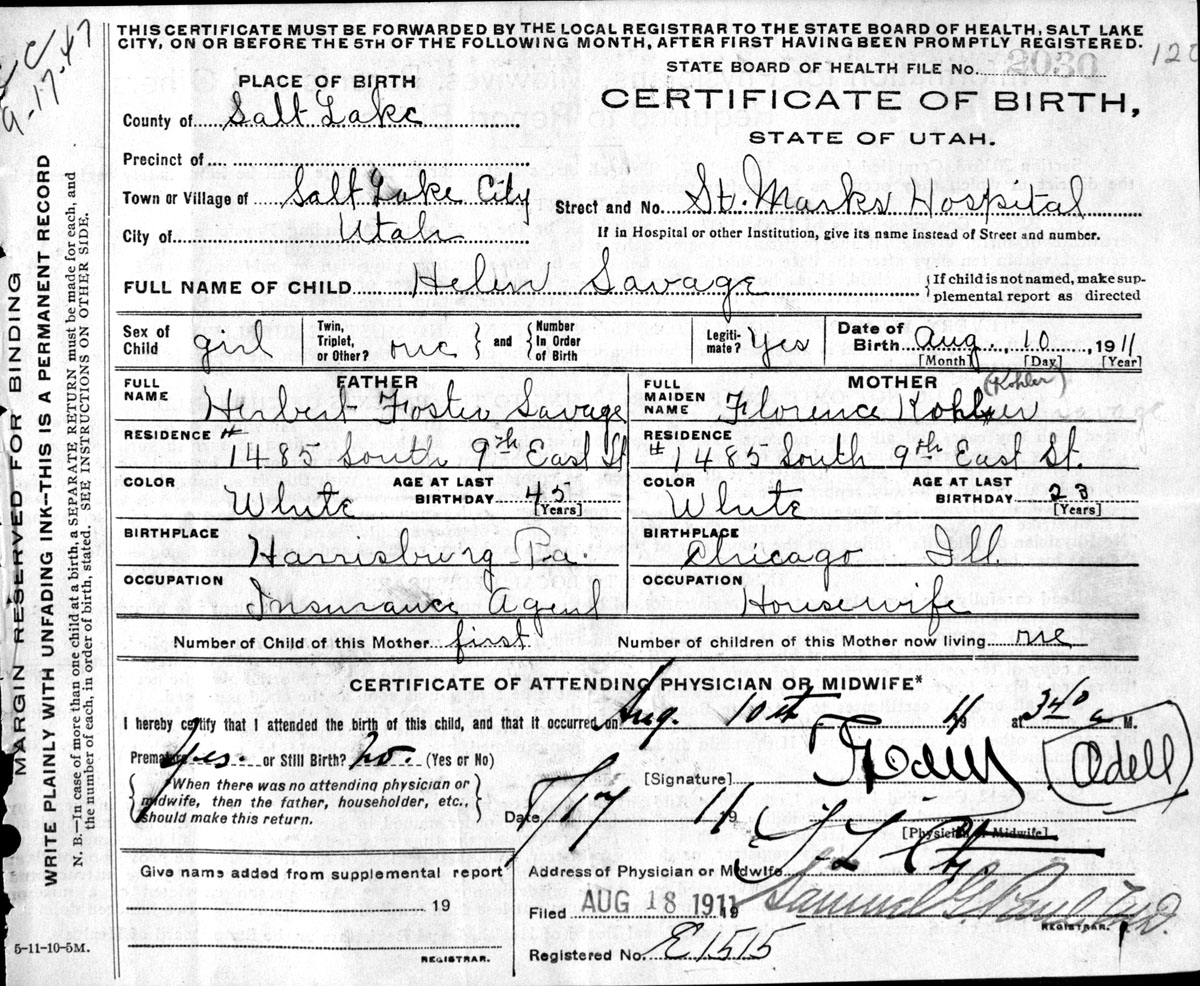 THIS CERTIFICATE MUST BE FORWARDED BY THE LOCAL REGISTRAR TO THE STATE BOARD OF HEALTH, SALT LAKE
CITY, ON OR BEFORE THE 5TH OF THE FOLLOWING MONTH, AFTER FIRST HAVING BEEN PROMPTLY REGISTERED.
9-17-47
STATE BOARD OF HEALTH FILE No. 2030
PLACE OF BIRTH
CERTIFICATE OF BIRTH,
STATE OF UTAH.
County of Salt Lake
Precinct of
Town or Village of Salt Lake City
Street and No. St. Marks Hospital
City of Utah
If in Hospital or other Institution, give its name instead of Street and number.
FULL NAME OF CHILD Helen Savage
If child is not named, make sup-
plemental report as directed
Sex of Child girl
Twin, Triplet, or Other? one
and
Number In Order of Birth
Legiti-mate? Yes
Date of Birth Aug. 10, 1911
[Month] [Day] [Year]
FATHER
FULL NAME Herbert Foster Savage
RESIDENCE # 1485 South 9th East St
COLOR White
AGE AT LAST BIRTHDAY 45 [Years]
BIRTHPLACE Harrisburg Pa.
OCCUPATION Insurance Agent
MOTHER
(Kohler)
FULL MAIDEN NAME Florence Kohler
RESIDENCE # 1485 South 9th East St.
COLOR White
AGE AT LAST BIRTHDAY 23 [Years]
BIRTHPLACE Chicago Ill.
OCCUPATION Housewife
Number of Child of this Mother first
Number of children of this Mother now living one
CERTIFICATE OF ATTENDING PHYSICIAN OR MIDWIFE*
I hereby certify that I attended the birth of this child, and that it occurred on Aug. 10th 11 19 at 340 a M.
Premature yes. or Still Birth? no. (Yes or No)
When there was no attending physician or
midwife, then the father, householder, etc.,
should make this return.
[Signature] Odell
Date 17 11 19
[Physician or Midwife]
Address of Physician or Midwife
Give name added from supplemental report
19
REGISTRAR.
Filed AUG 18 1911 19
Samuel G. Paul M.D.
REGISTRAR.
Registered No. E1515
5-11-10-5M.
MARGIN RESERVED FOR BINDING
WRITE PLAINLY WITH UNFADING INK--THIS IS A PERMANENT RECORD
N. B.--In case of more than one child at a birth, a SEPARATE RETURN must be made for each, and
the number of each, in order of birth, stated. SEE INSTRUCTIONS ON OTHER SIDE.